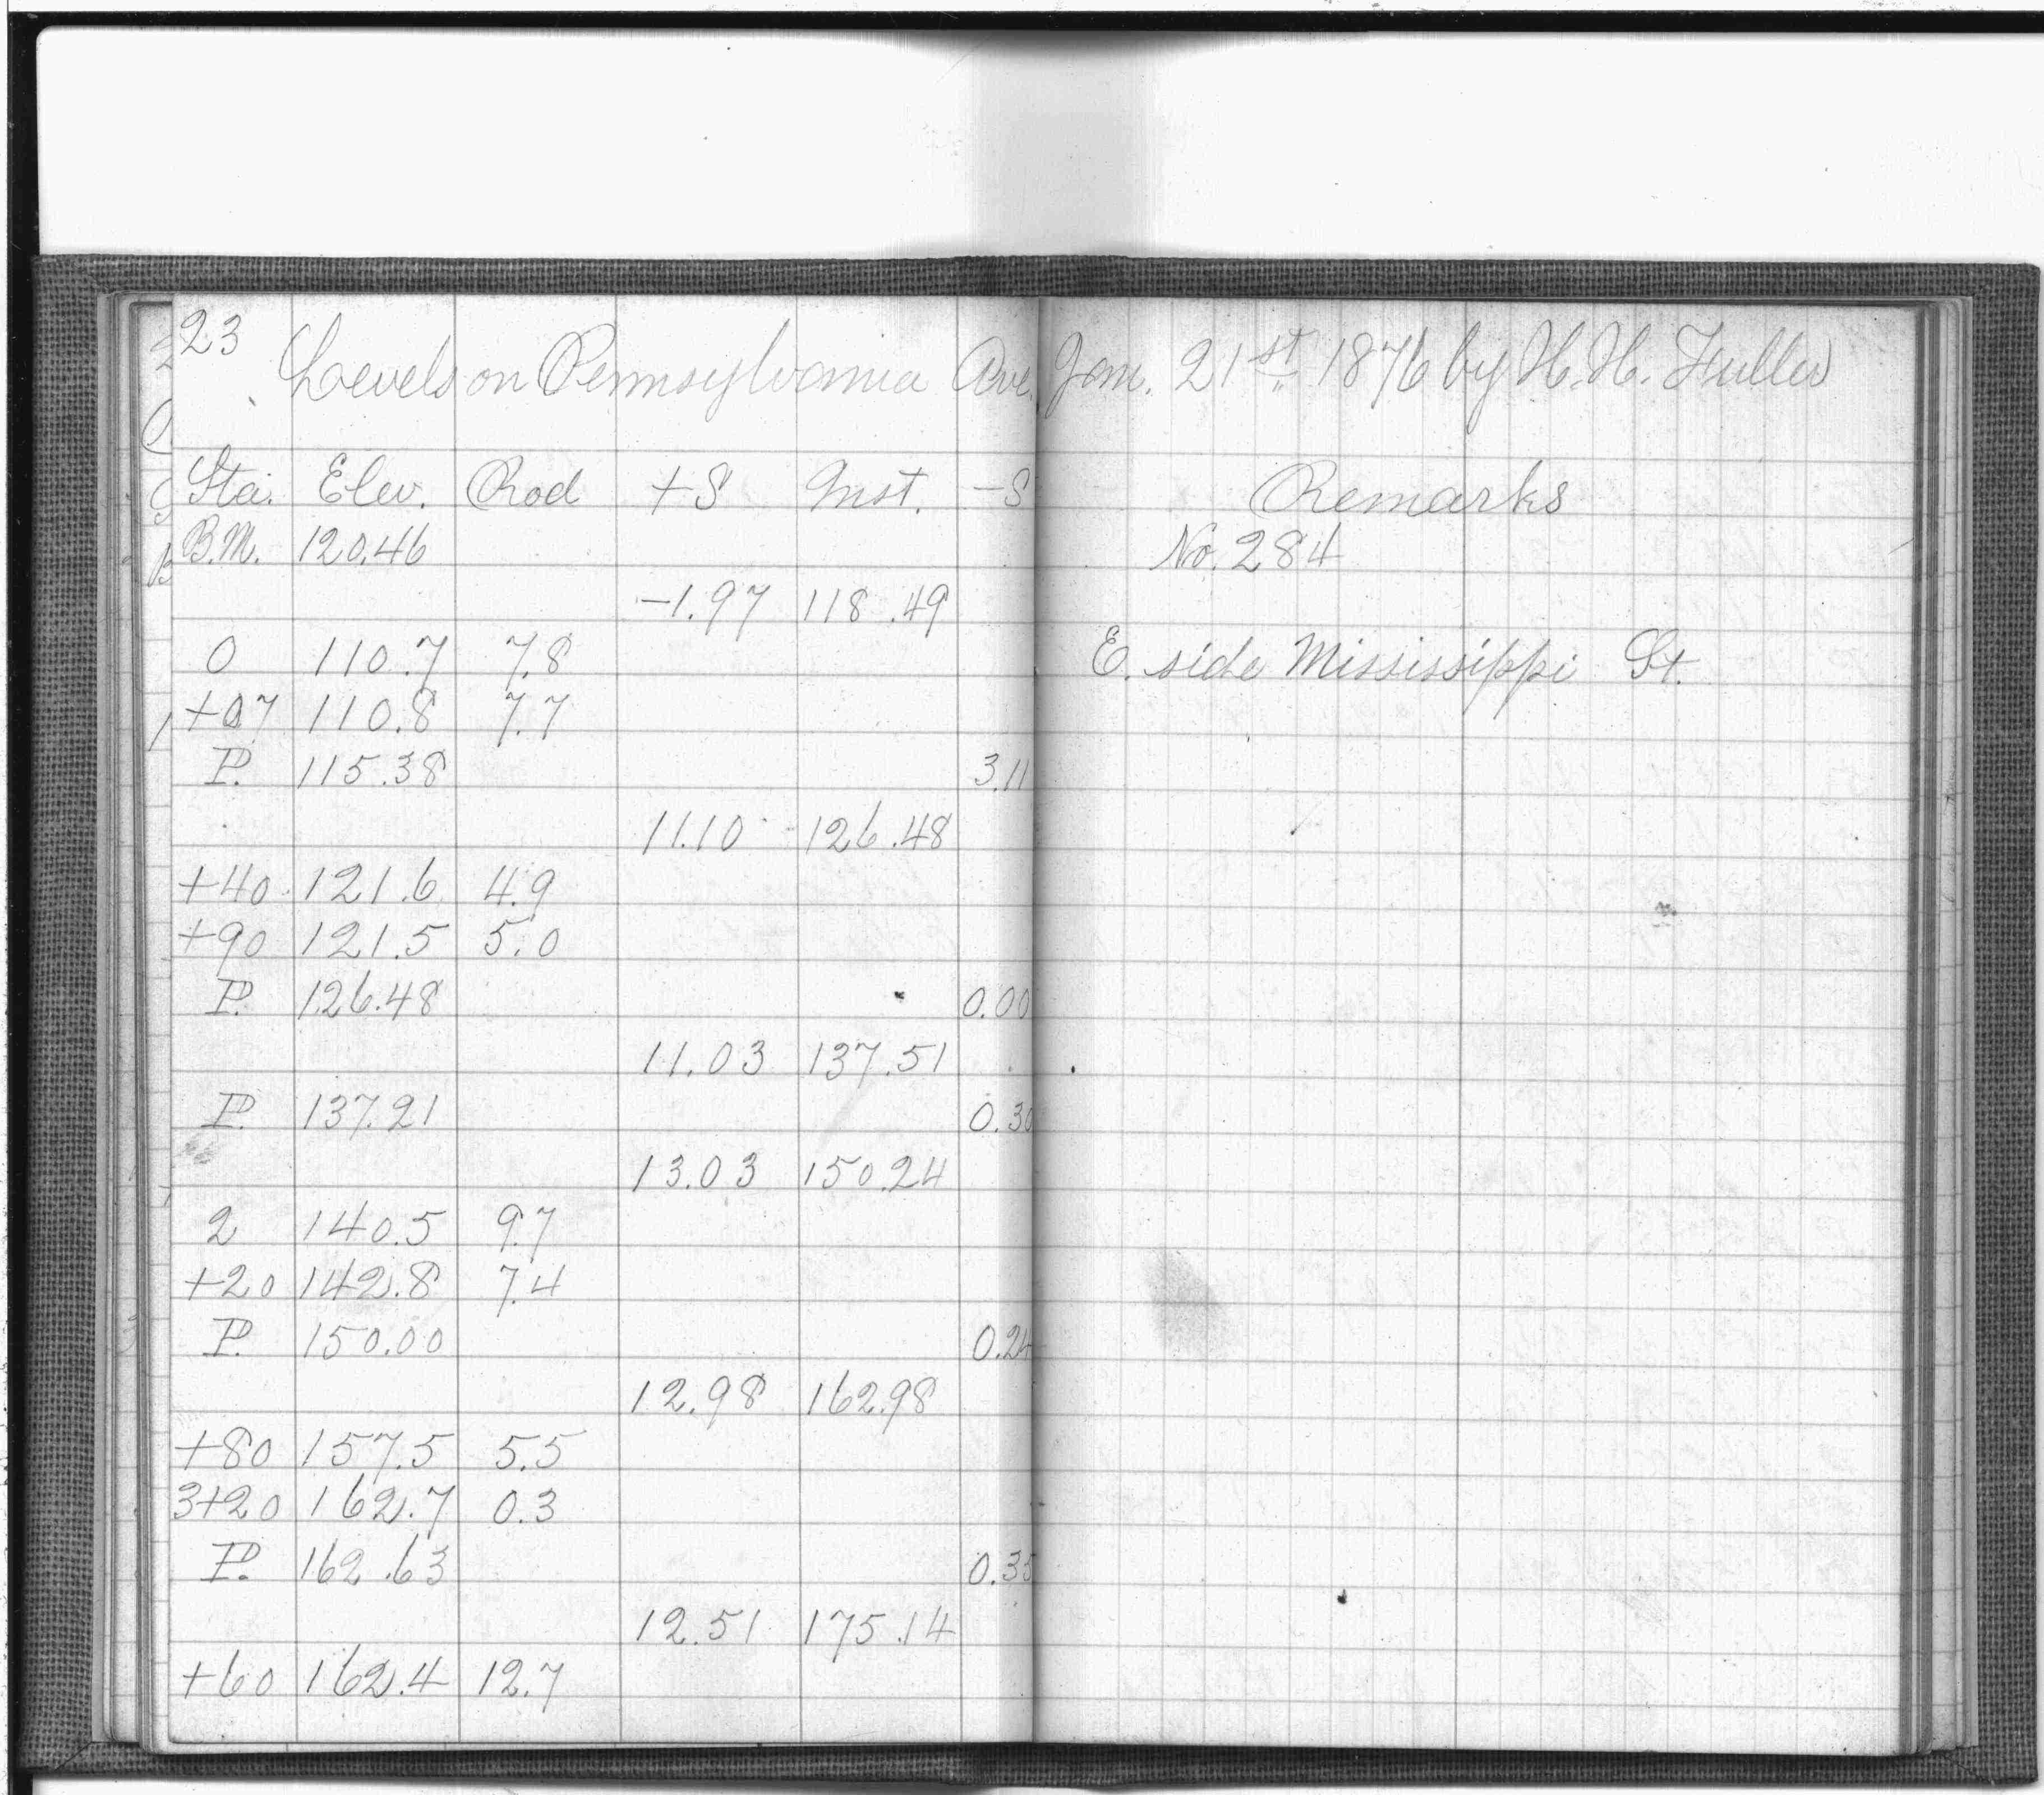 23
Levels on Pennsylvania Ave. Jan. 21st 1876 by H. H. Fuller
Sta. Elev. Rod +S Inst. -S Remarks
B.M. 120.46 No. 284
-1.97 118.49
0 110.7 7.8 E. side Mississippi St.
+07 110.8 7.7
P. 115.38 3.11
11.10 126.48
+40 121.6 4.9
+90 121.5 5.0
P. 126.48 0.00
11.03 137.51
P. 137.21 0.30
13.03 150.24
2 140.5 9.7
+20 142.8 7.4
P. 150.00 0.24
12.98 162.98
+80 157.5 5.5
3+20 162.7 0.3
P. 162.63 0.35
12.51 175.14
+60 162.4 12.7